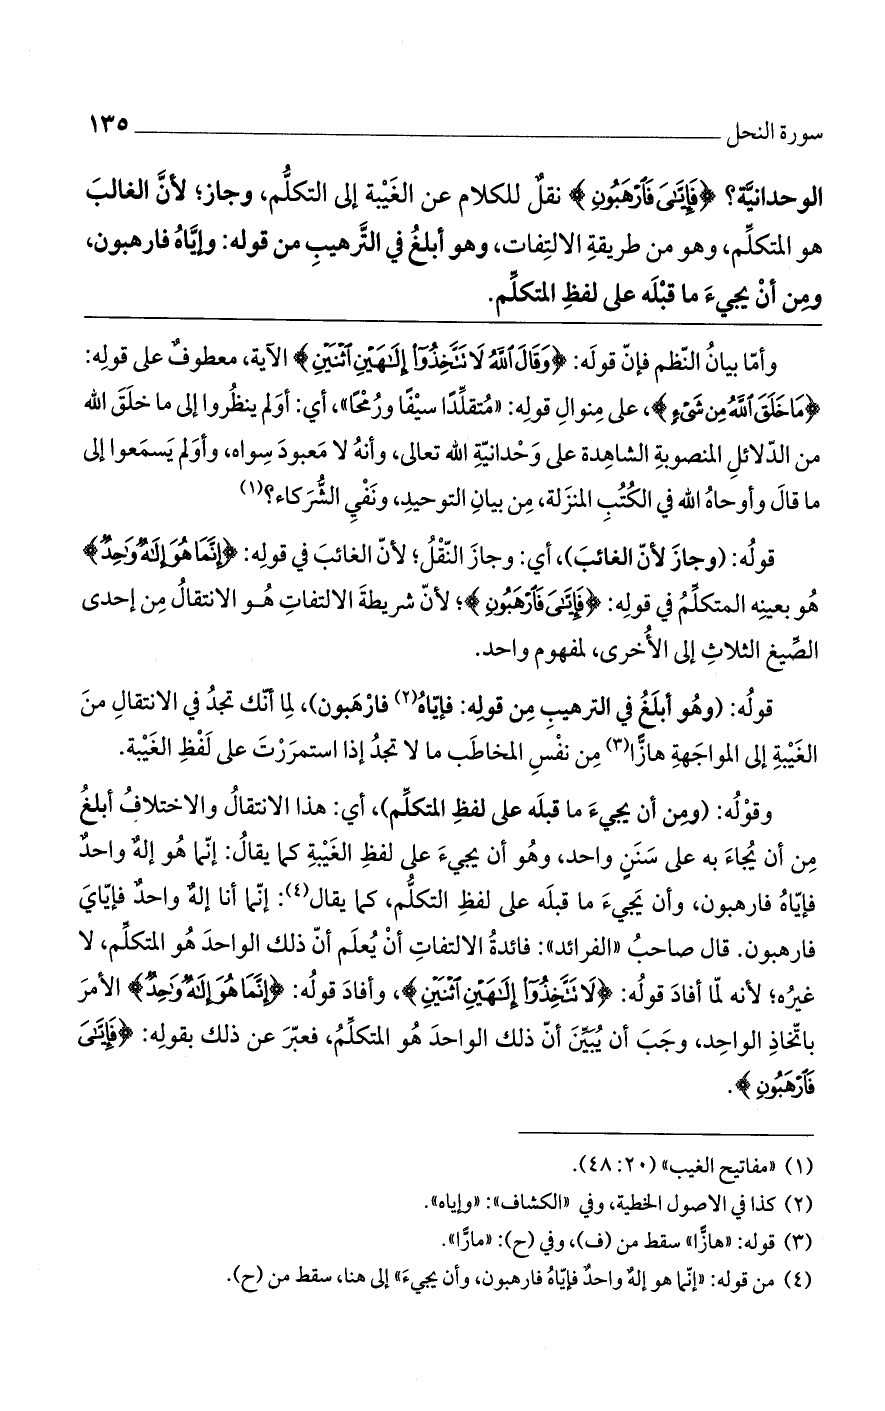 سورة النحل ١٣٥
الوحدانيَّة؟ ﴿فَإِيَّايَ فَارْهَبُونِ﴾ نقلٌ للكلام عن الغَيْبة إلى التكلُّم، وجاز؛ لأنَّ الغالبَ
هو المتكلِّم، وهو من طريقةِ الالتِفات، وهو أبلغُ في التَّرهيبِ من قوله: وإيَّاهُ فارهبون،
ومِن أنْ يجيءَ ما قبْلَه على لفظِ المتكلِّم.
وأمّا بيانُ النّظم فإنّ قولَه: ﴿وَقَالَ ٱللَّهُ لَا تَتَّخِذُوٓا۟ إِلَـٰهَيْنِ ٱثْنَيْنِ﴾ الآية، معطوفٌ على قولِه:
﴿مَا خَلَقَ ٱللَّهُ مِن شَىْءٍ﴾، على مِنوالِ قولِه: «مُتقلِّدًا سيْفًا ورُمْحًا»، أي: أوَلم ينظُروا إلى ما خلَقَ الله
من الدّلائلِ المنصوبةِ الشاهِدة على وَحْدانيّةِ الله تعالى، وأنهُ لا مَعبودَ سِواه، وأوَلم يَسمَعوا إلى
ما قالَ وأوحاهُ الله في الكُتُبِ المنزَلة، مِن بيانِ التوحيدِ، ونَفْيِ الشُّرَكاء؟(١)
قولُه: (وجازَ لأنّ الغائبَ)، أي: وجازَ النّقْلُ؛ لأنّ الغائبَ في قولِه: ﴿إِنَّمَا هُوَ إِلَـٰهٌ وَٰحِدٌ﴾
هُو بعينِه المتكلِّمُ في قولِه: ﴿فَإِيَّـٰىَ فَٱرْهَبُونِ﴾؛ لأنّ شريطةَ الالتفاتِ هُـو الانتقالُ مِن إحدى
الصِّيغِ الثلاثِ إلى الأُخرى، لمفهوم واحد.
قولُه: (وهُو أبلَغُ في الترهيبِ مِن قولِه: فإيّاهُ(٢) فارْهَبون)، لِما أنّك تجدُ في الانتقالِ منَ
الغَيْبةِ إلى المواجَهةِ هازًّا(٣) مِن نفْسِ المخاطَب ما لا تجدُ إذا استمرَرْتَ على لَفْظِ الغَيْبة.
وقوْلُه: (ومِن أن يجيءَ ما قبلَه على لفظِ المتكلِّم)، أي: هذا الانتقالُ والاختلافُ أبلغُ
مِن أن يُجاءَ به على سَنَنٍ واحد، وهُو أن يجيءَ على لفظِ الغَيْبةِ كما يقالُ: إنّما هُو إلهٌ واحدٌ
فإيّاهُ فارهبون، وأن يَجيءَ ما قبلَه على لفظِ التكلُّم، كما يقال(٤): إنّما أنا إلهٌ واحدٌ فإيّايَ
فارهبون. قال صاحبُ «الفرائد»: فائدةُ الالتفاتِ أنْ يُعلَم أنّ ذلك الواحدَ هُو المتكلِّم، لا
غيرُه؛ لأنه لمّا أفادَ قولُه: ﴿لَا تَتَّخِذُوٓا۟ إِلَـٰهَيْنِ ٱثْنَيْنِ﴾، وأفادَ قولُه: ﴿إِنَّمَا هُوَ إِلَـٰهٌ وَٰحِدٌ﴾ الأمرَ
باتّخاذِ الواحِد، وجَبَ أن يُبيِّنَ أنّ ذلك الواحدَ هُو المتكلِّمُ، فعبّرَ عن ذلك بقولِه: ﴿فَإِيَّـٰىَ
فَٱرْهَبُونِ﴾.
(١) «مفاتيح الغيب» (٢٠: ٤٨).
(٢) كذا في الأصول الخطية، وفي «الكشاف»: «وإياه».
(٣) قوله: «هازًّا» سقط من (ف)، وفي (ح): «مارًّا».
(٤) من قوله: «إنّما هو إلهٌ واحدٌ فإيّاهُ فارهبون، وأن يجيءَ» إلى هنا، سقط من (ح).